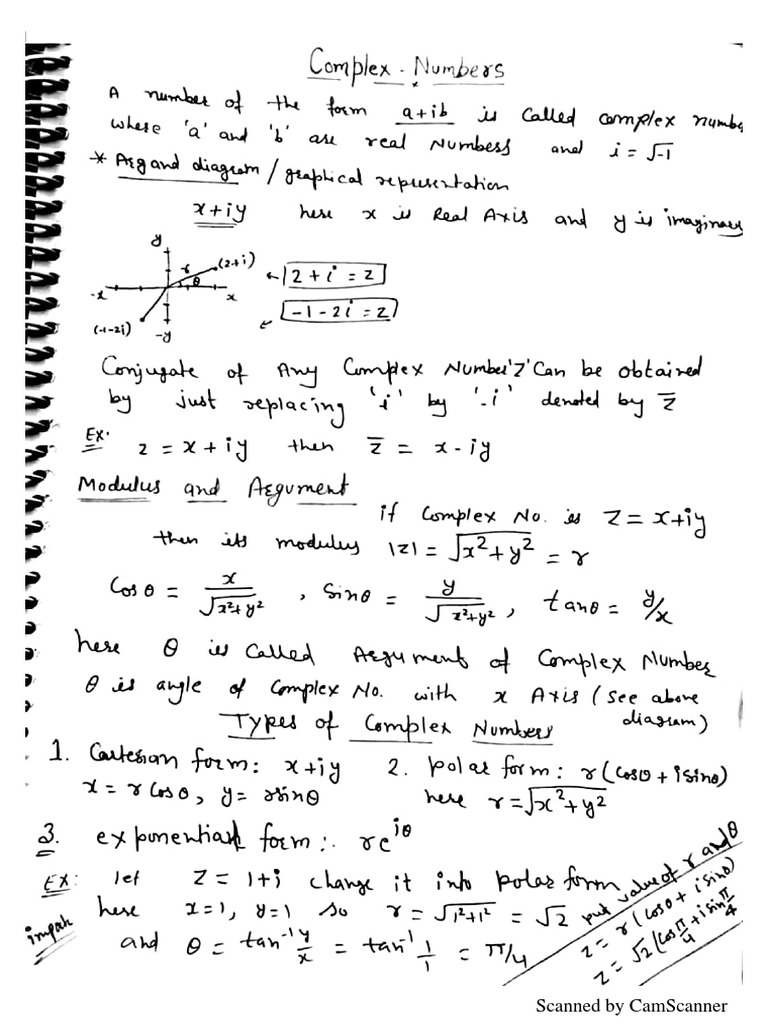 Complex Numbers
A number of the form a+ib is called complex numbe
where 'a' and 'b' are real Numbers and i = √-1
* Argand diagram / graphical representation
x+iy here x is Real Axis and y is imaginary
y
r (2+i)
θ
-x x
(-1-2i) -y
← 2+i = z
← -1-2i = z
Conjugate of Any Complex Number 'Z' Can be obtained
by just replacing 'i' by '-i' denoted by z̅
Ex. z = x+iy then z̅ = x-iy
Modulus and Argument
if Complex No. is Z = x+iy
then its modulus |z| = √(x²+y²) = r
Cosθ = x/√(x²+y²) , Sinθ = y/√(x²+y²) , tanθ = y/x
here θ is Called Argument of Complex Number
θ is angle of Complex No. with x Axis (see above diagram)
Types of Complex Numbers
1. Cartesian form: x+iy 2. polar form: r(cosθ+isinθ)
x = rcosθ, y = rsinθ here r = √(x²+y²)
3. exponential form: re^iθ
Ex: let Z = 1+i change it into polar form
here x=1, y=1 so r = √(1²+1²) = √2
and θ = tan⁻¹ y/x = tan⁻¹ 1/1 = π/4
put value of r and θ
z = r(cosθ + i sinθ)
z = √2(cos π/4 + i sin π/4)
Scanned by CamScanner